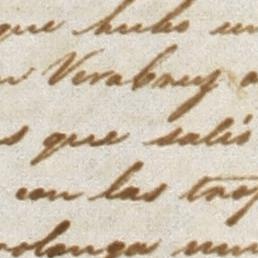 que hubo un
n Verabrey a
s que salió
con las trop
rolonga un